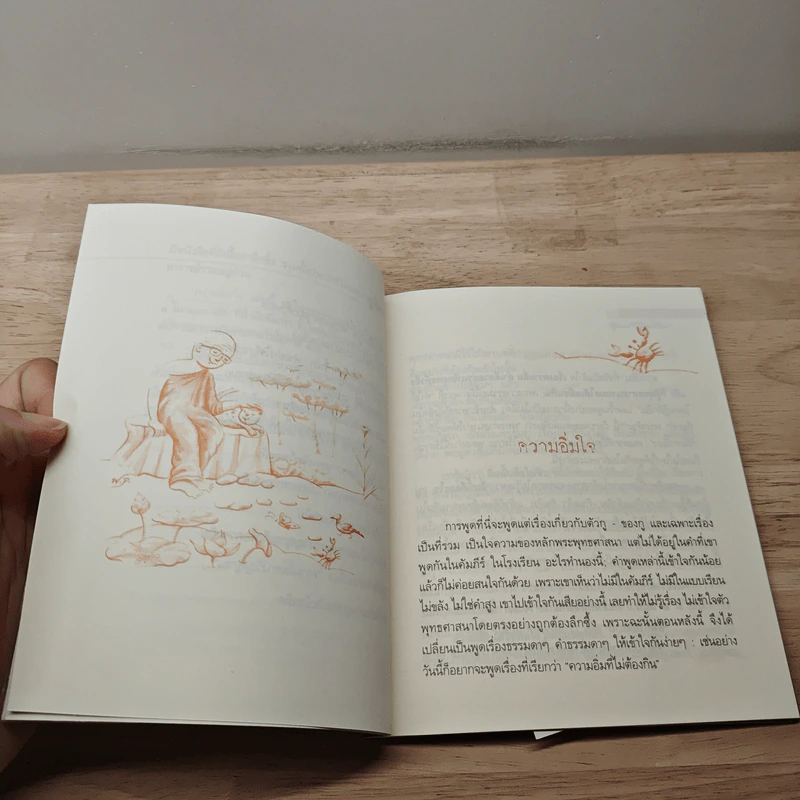 ความอิ่มใจ
การพูดที่นี่จะพูดแต่เรื่องเกี่ยวกับตัวกู - ของกู และเฉพาะเรื่อง
เป็นที่รวม เป็นใจความของหลักพระพุทธศาสนา แต่ไม่ได้อยู่ในคำที่เขา
พูดกันในคัมภีร์ ในโรงเรียน อะไรทำนองนี้, คำพูดเหล่านี้เข้าใจกันน้อย
แล้วก็ไม่ค่อยสนใจกันด้วย เพราะเขาเห็นว่าไม่มีในคัมภีร์ ไม่มีในแบบเรียน
ไม่ขลัง ไม่ใช่คำสูง เขาไปเข้าใจกันเสียอย่างนี้ เลยทำให้ไม่รู้เรื่อง ไม่เข้าใจตัว
พุทธศาสนาโดยตรงอย่างถูกต้องลึกซึ้ง เพราะฉะนั้นตอนหลังนี้ จึงได้
เปลี่ยนเป็นพูดเรื่องธรรมดาๆ คำธรรมดาๆ ให้เข้าใจกันง่ายๆ : เช่นอย่าง
วันนี้ก็อยากจะพูดเรื่องที่เรียกว่า "ความอิ่มที่ไม่ต้องกิน"